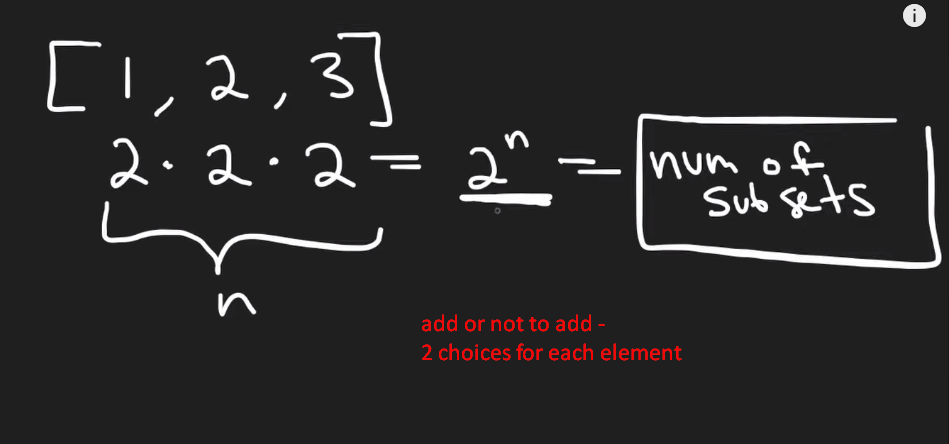 i
[1, 2, 3]
2 · 2 · 2 = 2ⁿ = num of
subsets
n
add or not to add -
2 choices for each element